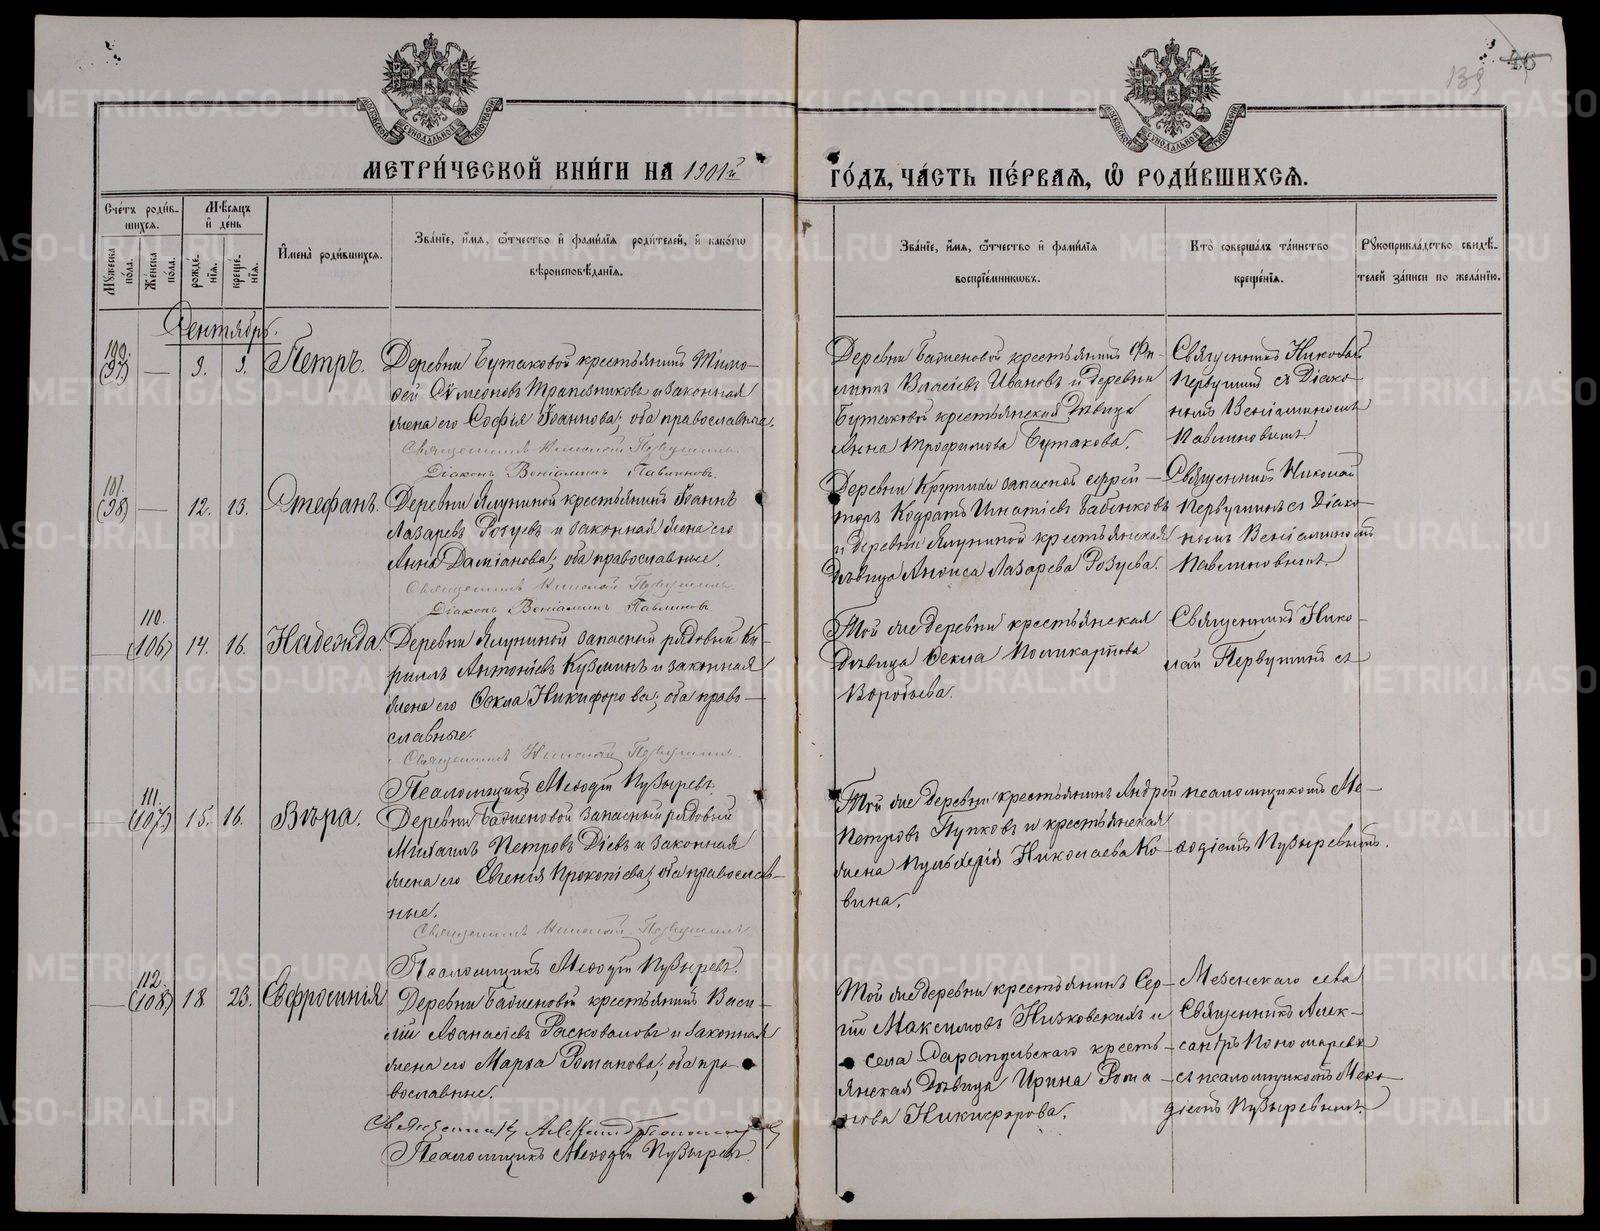 139
МЕТРИ́ЧЕСКОЙ КНИ́ГИ НА 1901й
ГО́ДЪ, ЧА́СТЬ ПЕ́РВАѦ, Ѡ҆ РОДИ́ВШИХСѦ.
Сче́тъ роди́в-
шихсѧ.
Мꙋ́жеска по́ла.
Же́нска по́ла.
Мѣ́сѧцъ
и҆ де́нь
рожде́-
нїѧ.
креще́-
нїѧ.
И҆мена̀ роди́вшихсѧ.
Зва́нїе, и҆́мѧ, ѻ҆́тчество и҆ фами́лїѧ роди́телей, и҆ како́гѡ
вѣроисповѣ́данїѧ.
Зва́нїе, и҆́мѧ, ѻ҆́тчество и҆ фами́лїѧ
воспрїе́мникѡвъ.
Кто̀ соверша́лъ та́инство
креще́нїѧ.
Рꙋкоприкла́дство свидѣ́-
телей за́писи по жела́нїю.
Сентябрь.
100.
(97) — 9. 9. Петръ.
Деревни Бутаковой крестьянинъ Тимо-
фей Сѵмеоновъ Трапезниковъ и законная
жена его Софья Іоаннова; оба православные.
Священникъ Николай Первушинъ.
Діаконъ Веніаминъ Павлиновъ.
Деревни Бадиеновой крестьянинъ Фи-
липпъ Власіевъ Ивановъ и деревни
Бутаковой крестьянская дѣвица
Анна Трофимова Бутакова.
Священникъ Николай
Первушинъ съ Діако-
номъ Веніаминомъ
Павлиновымъ.
101.
(98) — 12. 13. Стефанъ.
Деревни Ялуниной крестьянинъ Іоаннъ
Лазаревъ Розуевъ и законная жена его
Анна Даміанова; оба православные.
Священникъ Николай Первушинъ.
Діаконъ Веніаминъ Павлиновъ
Деревни Крутихи запасной ефрей-
торъ Кодратъ Игнатіевъ Бабенковъ
и деревни Ялуниной крестьянская
дѣвица Анфиса Лазарева Розуева.
Священникъ Николай
Первушинъ съ Діако-
номъ Веніаминомъ
Павлиновымъ.
110.
— (106) 14. 16. Надежда.
Деревни Ялуниной запасный рядовый Ки-
риллъ Антоніевъ Кузминъ и законная
жена его Ѳекла Никифорова; оба право-
славные.
Священникъ Николай Первушинъ.
Псаломщикъ Меѳодій Пузыревъ.
Той же деревни крестьянская
дѣвица Ѳекла Поликарпова
Воробьева.
Священникъ Нико-
лай Первушинъ съ
111.
— (107) 15. 16. Вѣра.
Деревни Бадиеновой запасный рядовый
Михаилъ Петровъ Діевъ и законная
жена его Евгенія Прокопіева; оба православ-
ные.
Священникъ Николай Первушинъ.
Псаломщикъ Меѳодій Пузыревъ.
Той же деревни крестьянинъ Андрей
Петровъ Пупковъ и крестьянская
жена Пульхерія Николаева Ко-
вина.
псаломщикомъ Ме-
ѳодіемъ Пузыревымъ.
112.
— (108) 18. 23. Евфросинія
Деревни Бадиеновой крестьянинъ Васи-
лій Аѳанасіевъ Расковаловъ и законная
жена его Марѳа Романова; оба пра-
вославные.
Священникъ Александръ Пономаревъ
Псаломщикъ Меѳодій Пузыревъ.
Той же деревни крестьянинъ Сер-
гій Максимовъ Низковскихъ и
села Дарапульскаго кресть-
янская дѣвица Ирина Рома-
нова Никифорова.
Мезенскаго села
Священникъ Алек-
сандръ Пономаревъ
съ псаломщикомъ Меѳо-
діемъ Пузыревымъ.